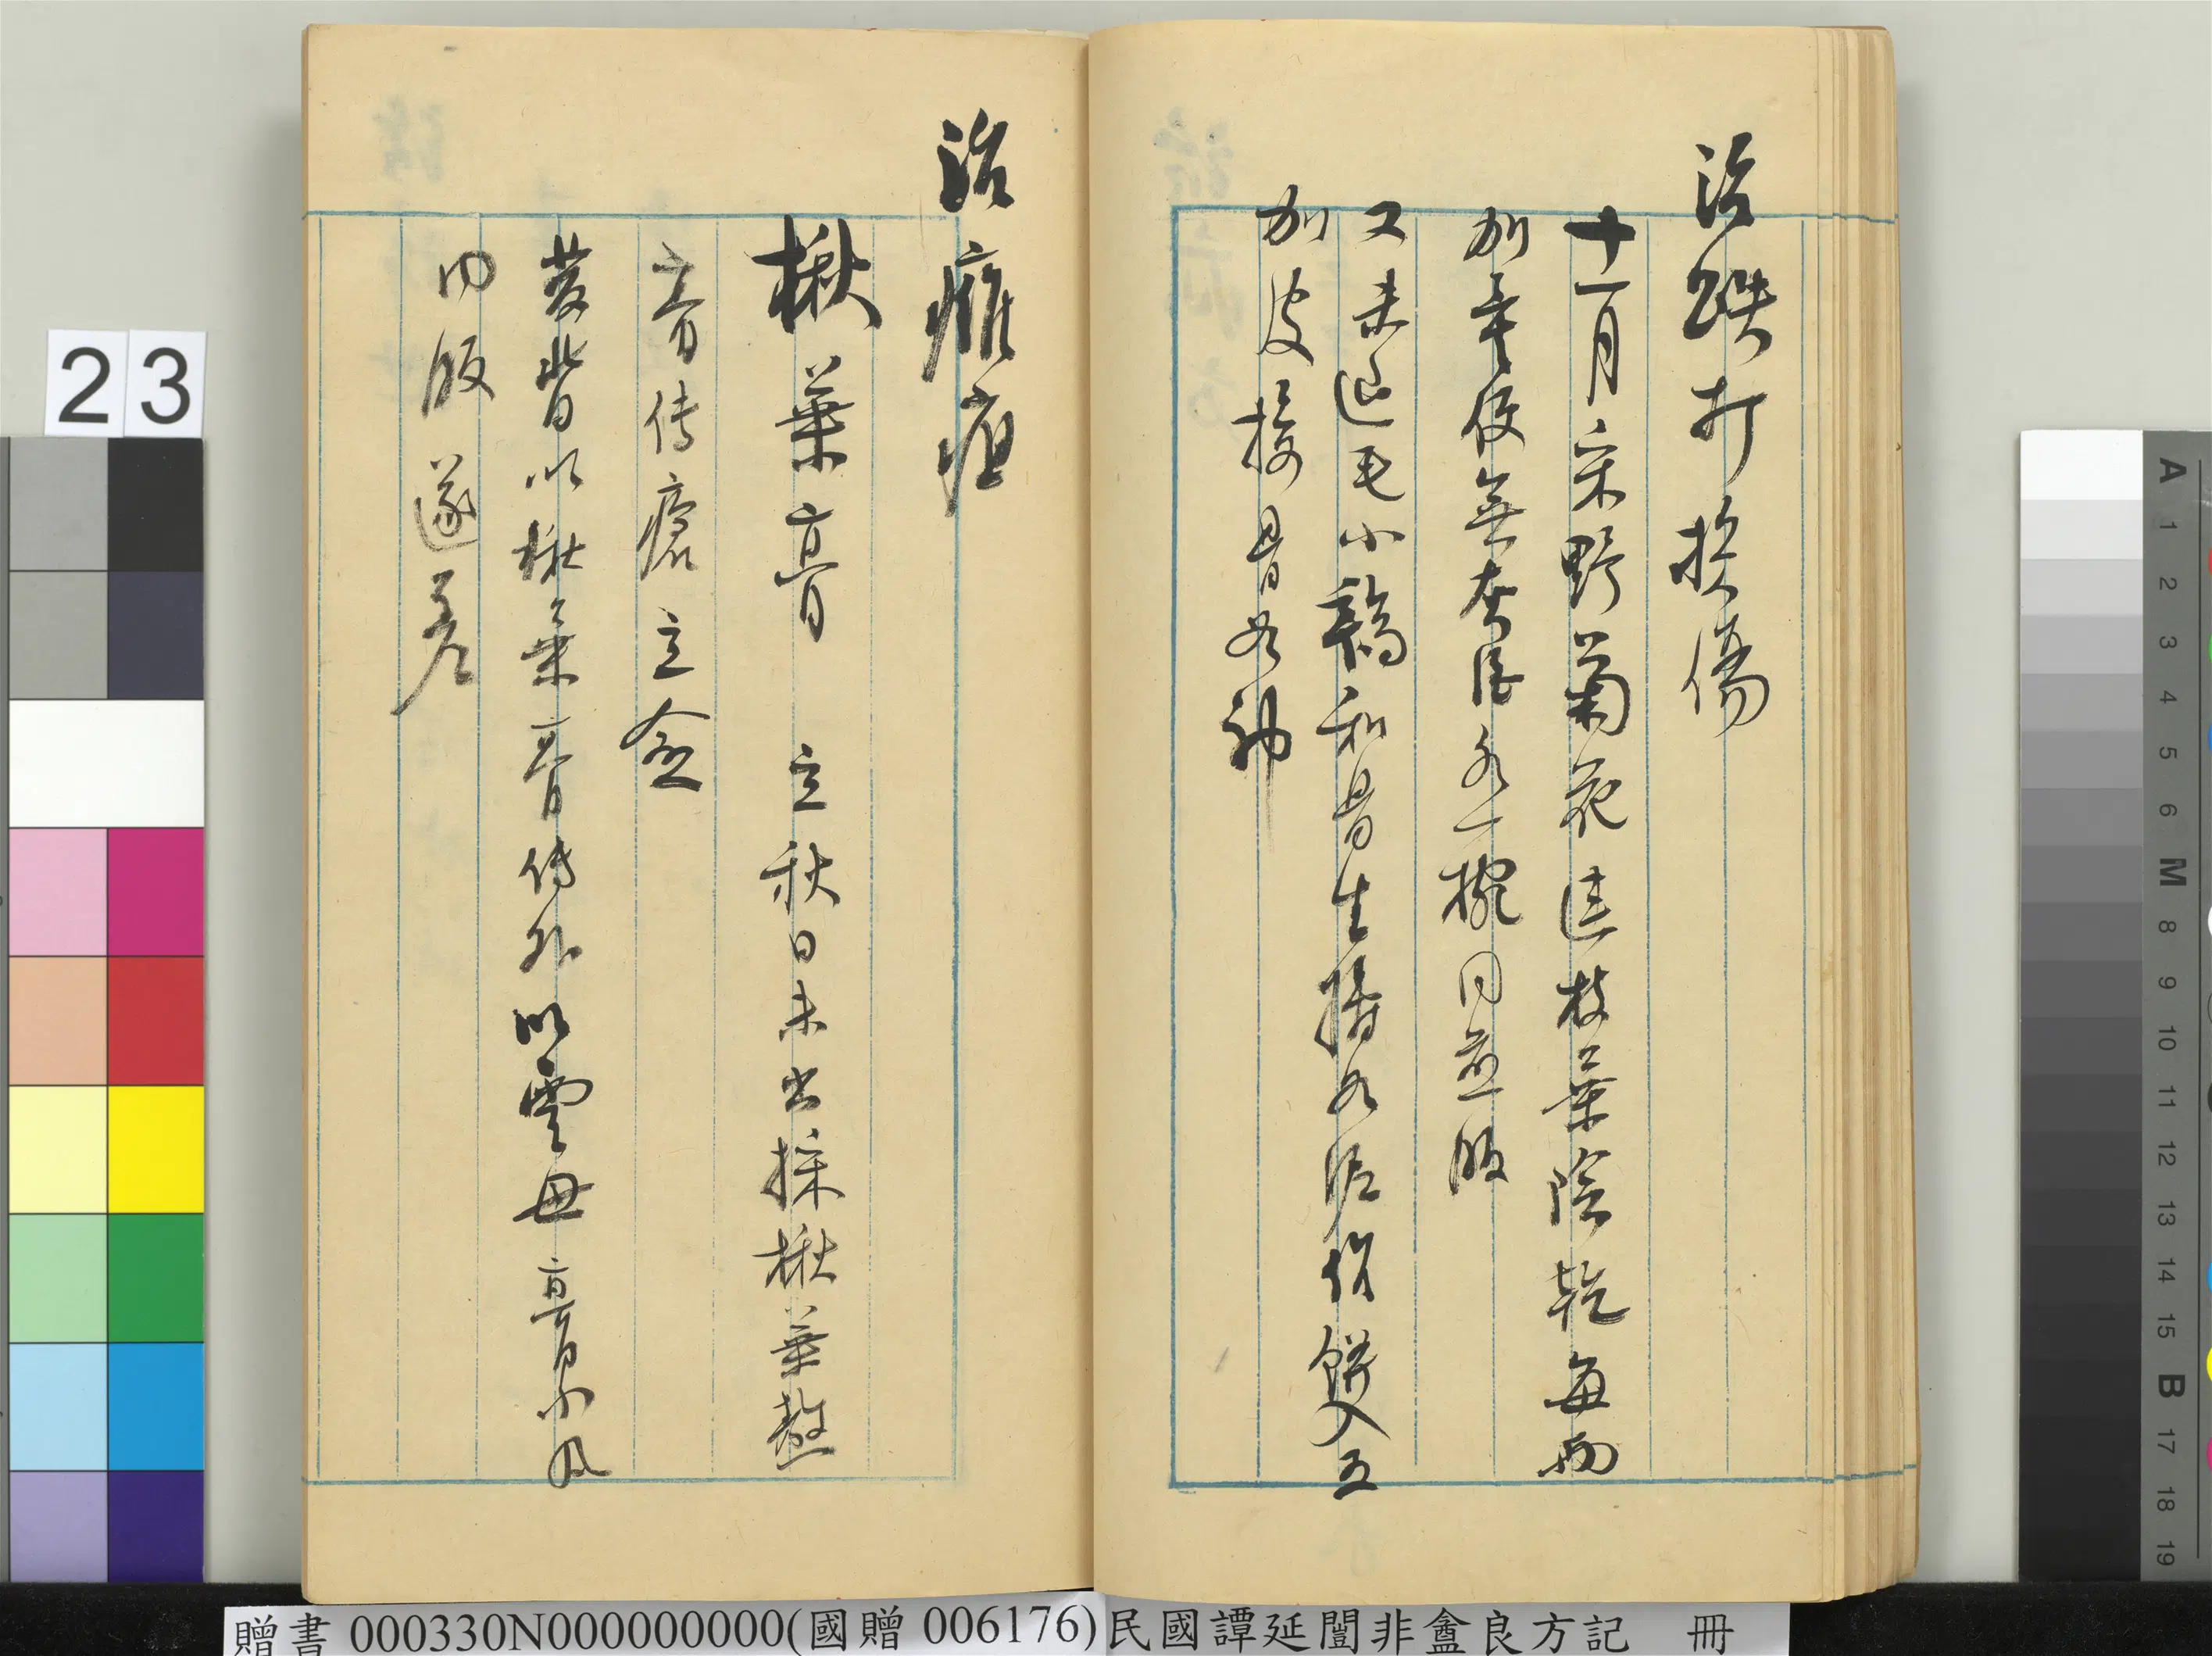 治跌打損傷
十一月采野菊花連枝葉陰乾每兩
加童便無灰酒各一椀同煎服
又未退毛小鷄和骨生搗如泥作餅入五
加皮接骨如神
治癰疽
楸葉膏 立秋日未出採楸葉熬
膏傅瘡立愈
發背以楸葉膏傅外以雲母膏為小丸
內服遂差
23
贈書 000330N000000000(國贈 006176)民國譚延闓非盦良方記 冊
A 1 2 3 4 5 6 M 8 9 10 11 12 13 14 15 B 17 18 19